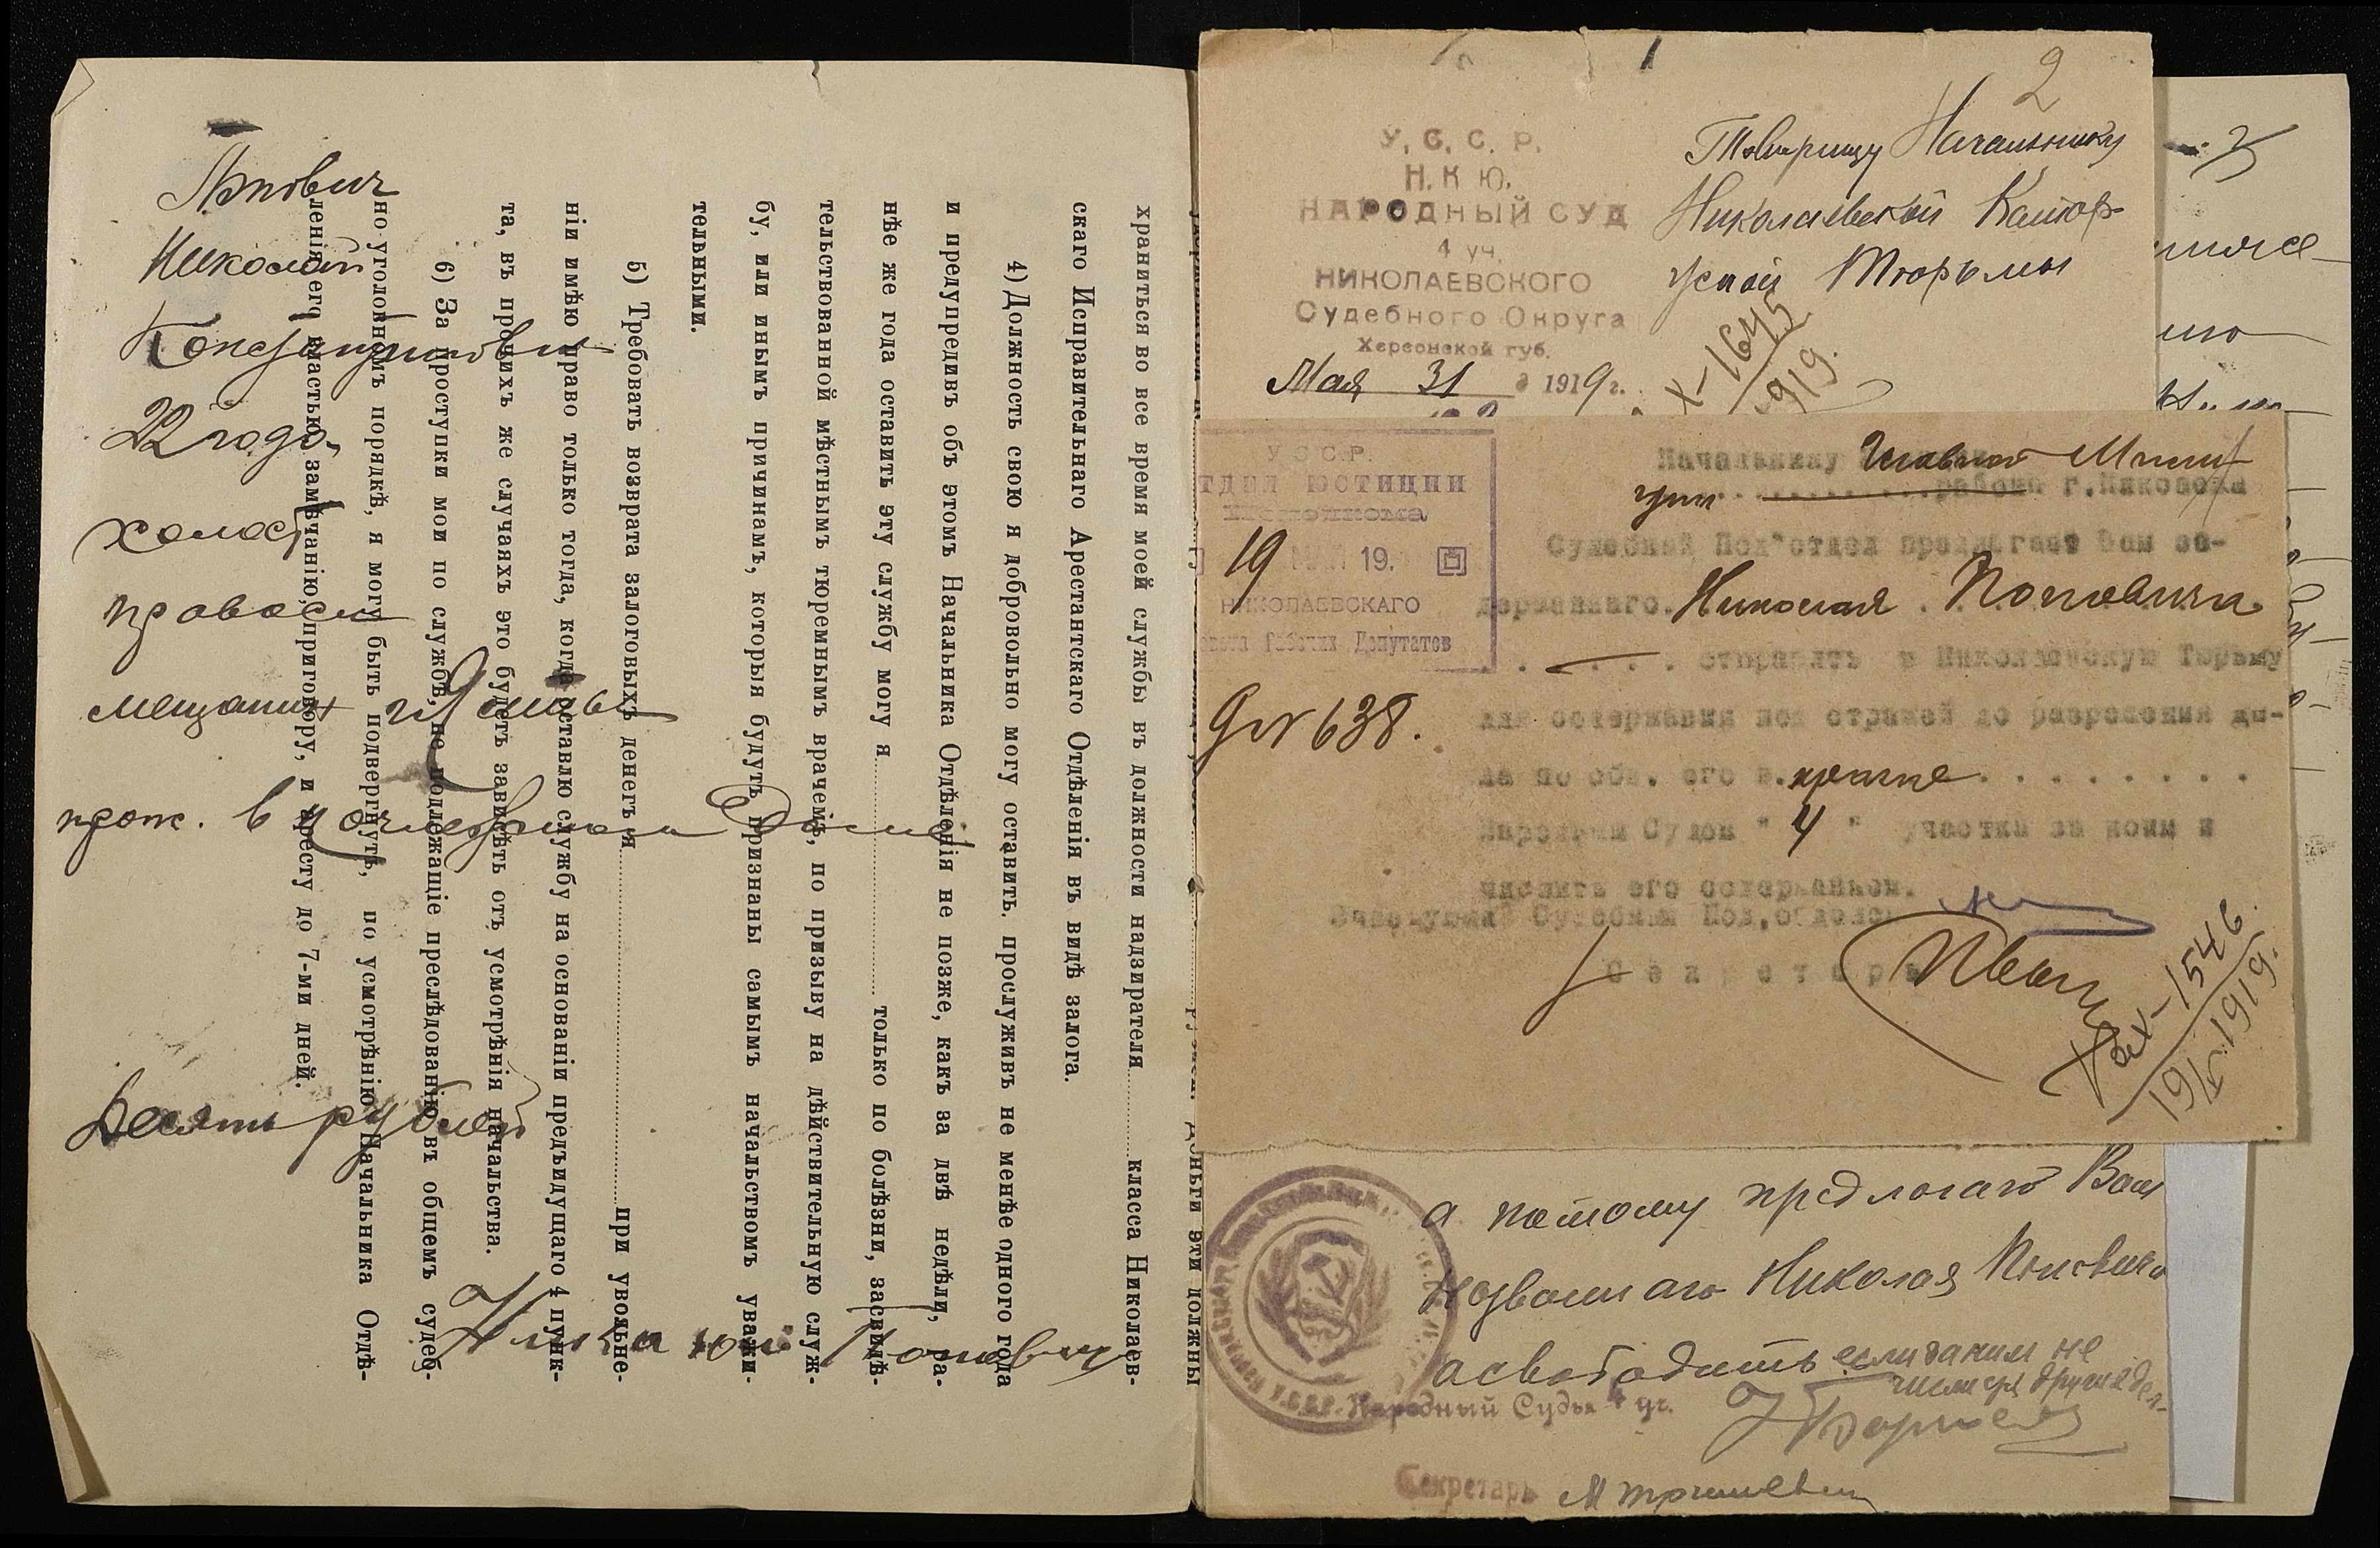 Попович
Николай
Константинов
22 года
холост
правосл
мещанин г.
прож. в Ночлежном Доме
Десять рублей
Николай Попович
храниться во все время моей службы въ должности надзирателя ........ класса Николаев-
скаго Исправительнаго Арестантскаго Отдѣленія въ видѣ залога.
4) Должность свою я добровольно могу оставить, прослуживъ не менѣе одного года
и предупредивъ объ этомъ Начальника Отдѣленія не позже, какъ за двѣ недѣли, ра-
нѣе же года оставить эту службу могу я ........ только по болѣзни, засвидѣ-
тельствованной мѣстнымъ тюремнымъ врачемъ, по призыву на дѣйствительную служ-
бу, или инымъ причинамъ, которыя будутъ признаны самымъ начальствомъ уважи-
тельными.
5) Требовать возврата залоговыхъ денегъ я ........ при увольне-
ніи имѣю право только тогда, когда оставлю службу на основаніи предъидущаго 4 пунк-
та, въ прочихъ же случаяхъ это будетъ зависѣть отъ усмотрѣнія начальства.
6) За проступки мои по службѣ, не подлежащіе преслѣдованію въ общемъ судеб-
но-уголовномъ порядкѣ, я могу быть подвергнутъ, по усмотрѣнію Начальника Отдѣ-
ленія, его властью, замѣчанію, приговору, и аресту до 7-ми дней.
2
У. С. С. Р.
Н. К Ю.
НАРОДНЫЙ СУД
4 уч.
НИКОЛАЕВСКОГО
Судебного Округа
Херсонской губ.
Мая 31 д 1919 г.
Товарищу Начальнику
Николаевской Катор-
жной Тюрьмы
Х-1645
919.
У С С Р.
ТДЕЛ ЮСТИЦИИ
Исполкома
19 МАЯ 19.
НИКОЛАЕВСКАГО
Совета Рабочих Депутатов
№ 638.
Начальнику Главной Милиц
района г. Николаева
Судебный Под"отдел предлагает Вам за-
держаннаго. Николая Поповича
отправить в Николаевскую Тюрьму
для содержания под стражей до разрешения де-
ла по обв. его в. краже
Народным Судом "4" участка за коим и
числить его содержанием.
Заведующий Судебным Под,отделом
Секретарь
Вх-1546.
19/V 1919.
а потому предлогаю Вам
названнаго Николая Поповича
асвободить если за ним не
числится других дел-
Народный Судья 4 уч.
Секретарь